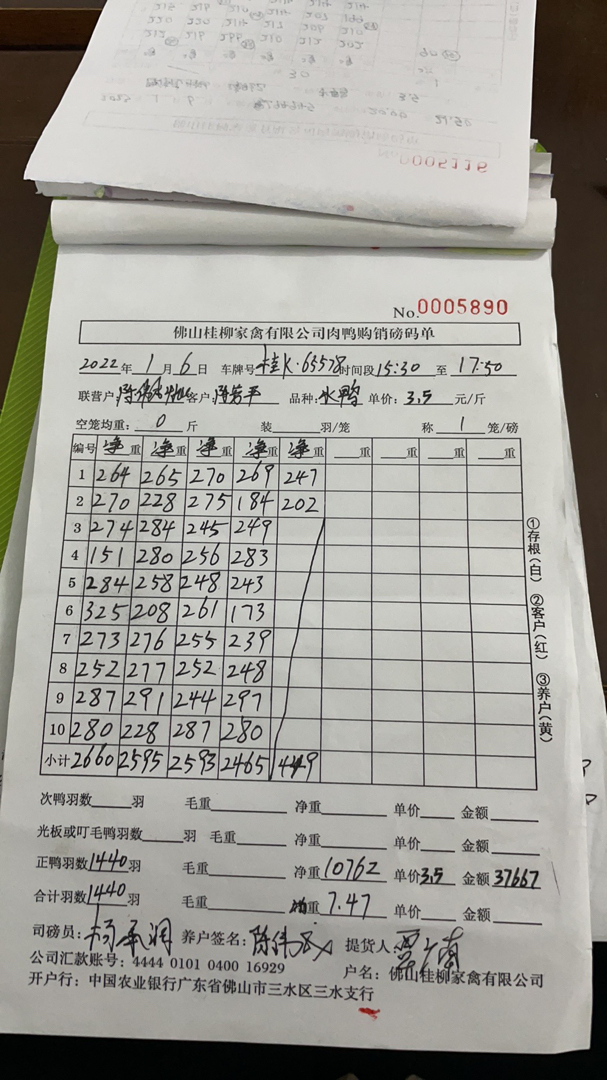 0005116
No.0005890
佛山桂柳家禽有限公司肉鸭购销磅码单
2022年1月6日 车牌号桂K·65578时间段15:30至17:50
联营户:陈伟 客户:陈芳平 品种:水鸭 单价:3.5元/斤
空笼均重:0斤 装 羽/笼 称1笼/磅
编号 净重 净重 净重 净重 净重 重 重 重 重
1 264 265 270 269 247
2 270 228 275 184 202
3 274 284 245 249
4 151 280 256 283
5 284 258 248 243
6 325 208 261 173
7 273 276 255 239
8 252 277 252 248
9 287 291 244 297
10 280 228 287 280
小计 2660 2595 2593 2465 449
①存根(白) ②客户(红) ③养户(黄)
次鸭羽数 羽 毛重 净重 单价 金额
光板或叮毛鸭羽数 羽 毛重 净重 单价 金额
正鸭羽数1440羽 毛重 净重10762 单价3.5 金额37667
合计羽数1440羽 毛重 均重7.47 单价 金额
司磅员:杨承润 养户签名:陈伟 提货人:
公司汇款账号:4444 0101 0400 16929 户名:佛山桂柳家禽有限公司
开户行:中国农业银行广东省佛山市三水区三水支行